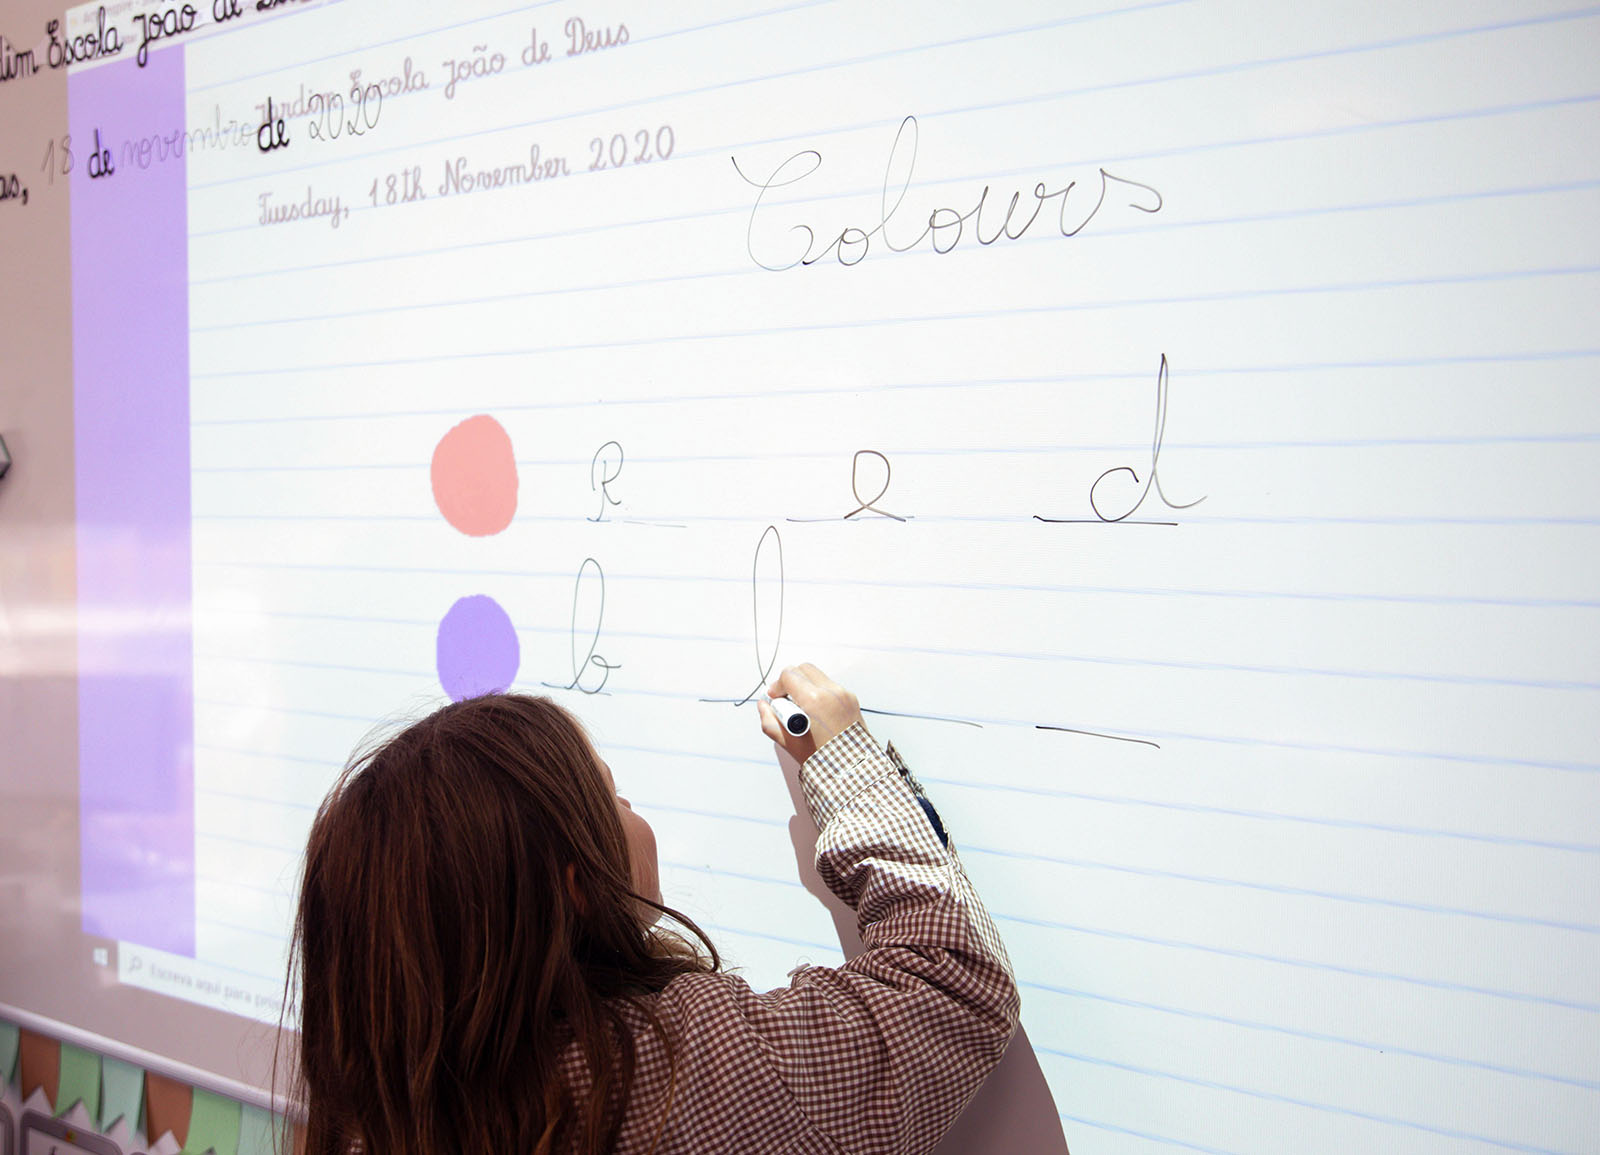 Escola João de
18 de novembro de 2020
Jardim Escola João de Deus
Tuesday, 18th November 2020
Colours
R e d
b l
Escreva aqui para